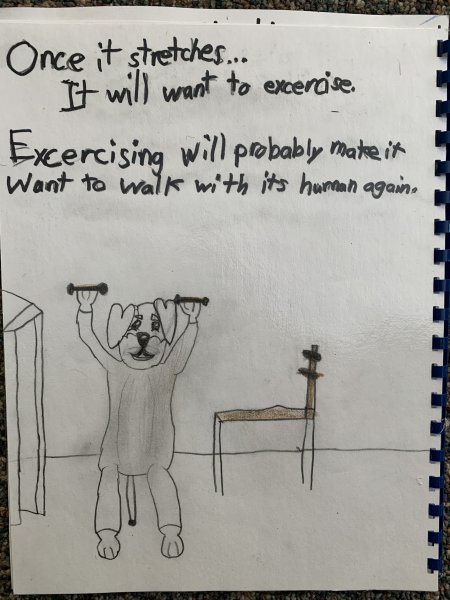 Once it stretches...
It will want to excercise.
Excercising will probably make it
want to walk with its human again.